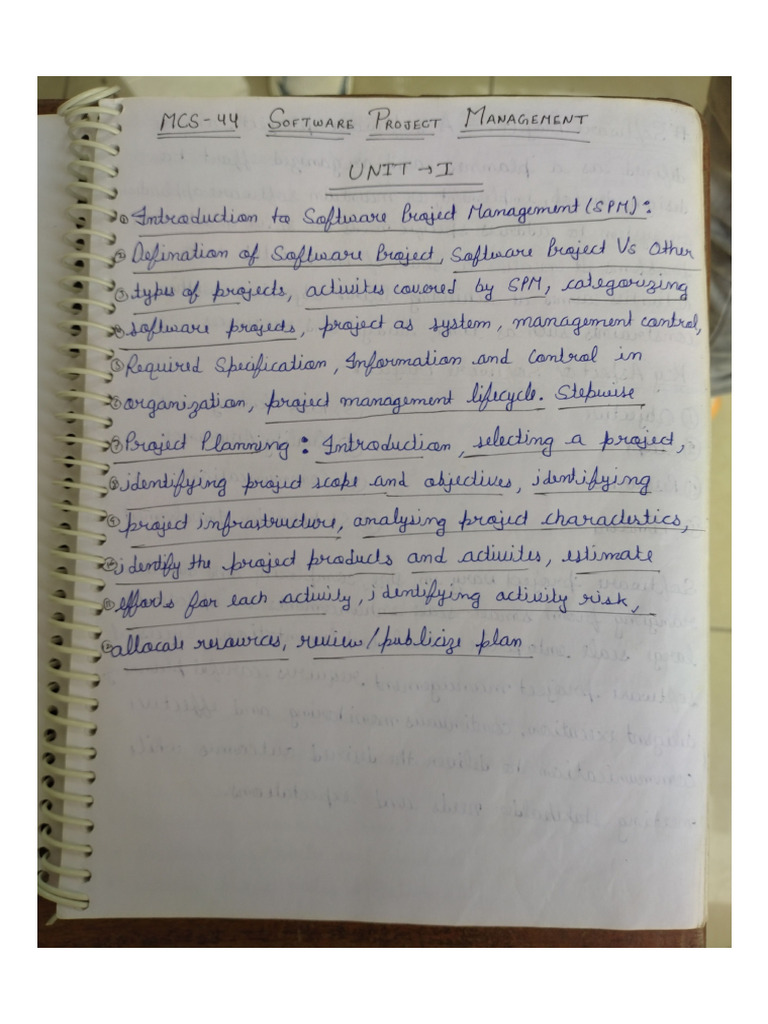 MCS-44 SOFTWARE PROJECT MANAGEMENT
UNIT → I
① Introduction to Software Project Management (SPM):
② Defination of Software Project, Software Project Vs Other
③ types of projects, activites covered by SPM, categorizing
④ software projects, project as system, management control,
⑤ Required Specification, Information and control in
⑥ organization, project management lifecycle. Stepwise
⑦ Project Planning: Introduction, selecting a project,
⑧ identifying project scope and objectives, identifying
⑨ project infrastructure, analysing project characterstics,
⑩ identify the project products and activites, estimate
⑪ efforts for each activity, identifying activity risk,
⑫ allocate resources, review/publicize plan